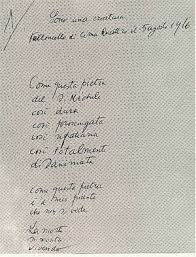 Sono una creatura
Valloncello di Cima Quattro il 5 agosto 1916
Come questa pietra
del S. Michele
così dura
così prosciugata
così refrattaria
così totalmente
disanimata
come questa pietra
è il mio pianto
che non si vede
La morte
si sconta
vivendo